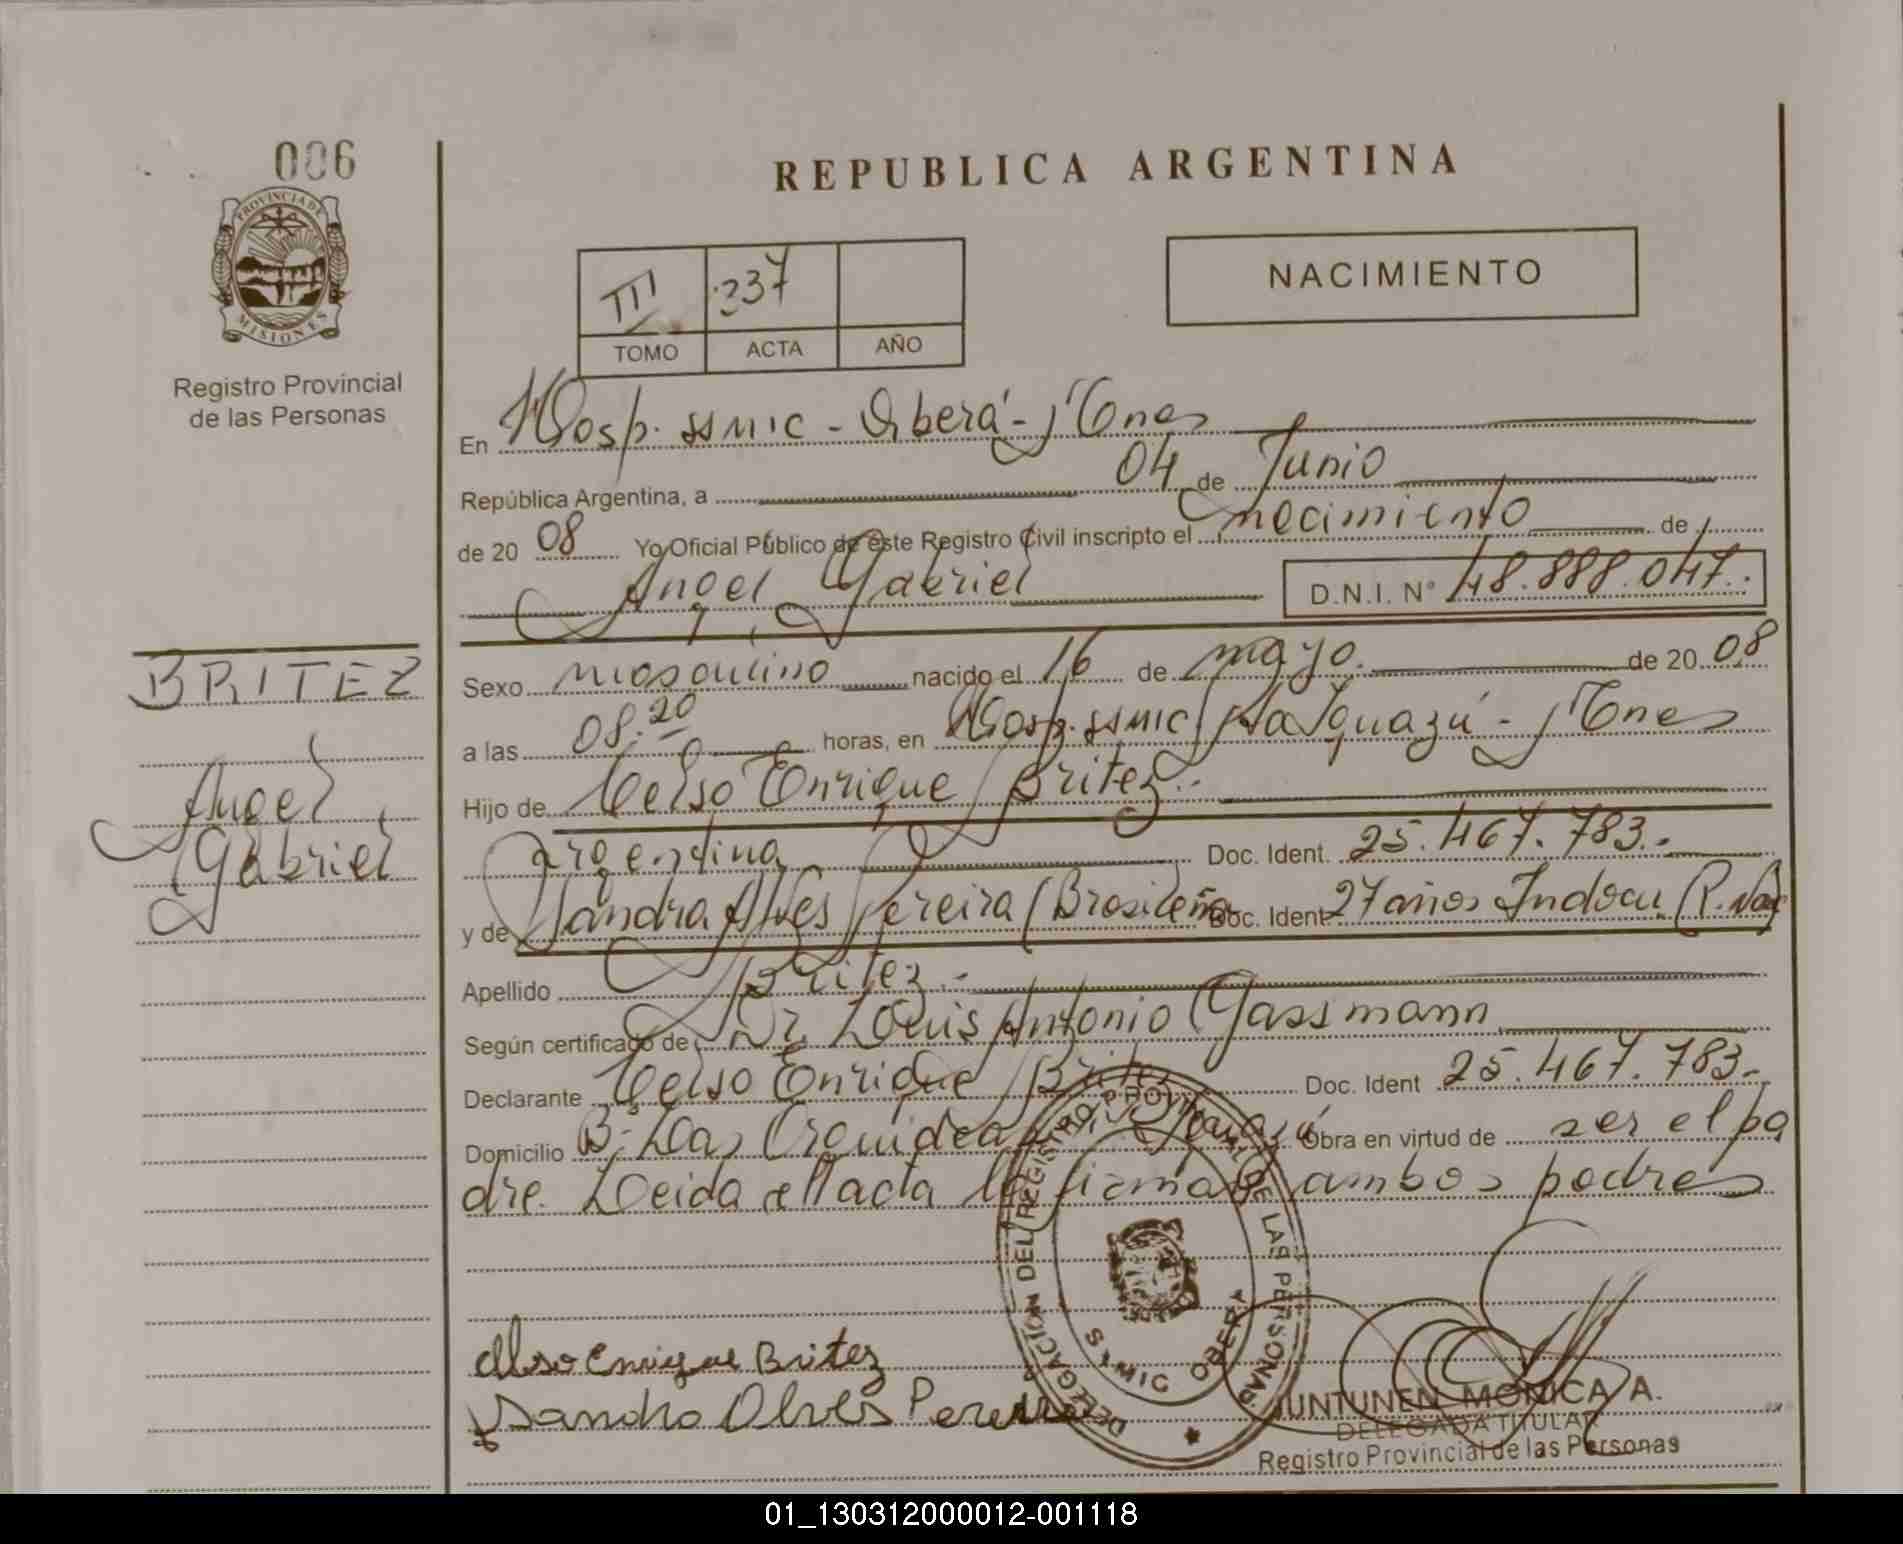 006
REPUBLICA ARGENTINA
PROVINCIA DE
MISIONES
Registro Provincial
de las Personas
III 237
TOMO ACTA AÑO
NACIMIENTO
En Hosp. SSMIC - Oberá - Mnes
República Argentina, a 04 de Junio
de 20 08 Yo Oficial Público de este Registro Civil inscripto el nacimiento de
Angel Gabriel D.N.I. N° 48.888.047.
BRITEZ
Angel
Gabriel
Sexo masculino nacido el 16 de mayo. de 20 08
a las 08.20 horas, en Hosp. SSMIC Iguazú - Mnes
Hijo de Celso Enrique Britez.
argentina Doc. Ident. 25.467.783.-
y de Sandra Alves Pereira (Brasileña Doc. Ident 27 años Indocu (P. Nac
Apellido Britez.-
Según certificado de Dr. Louis Antonio Gassmann
Declarante Celso Enrique Britez Doc. Ident 25.467.783.-
Domicilio B: Las Orquideas Iguazú Obra en virtud de ser el pa
dre. Leida el acta la firman ambos padres
DELEGACIÓN DEL REGISTRO PROVINCIAL DE LAS PERSONAS
SSMIC OBERA
Celso Enrique Britez
Sandra Alves Pereira
JUNTUNEN MONICA A.
DELEGADA TITULAR
Registro Provincial de las Personas
01_130312000012-001118